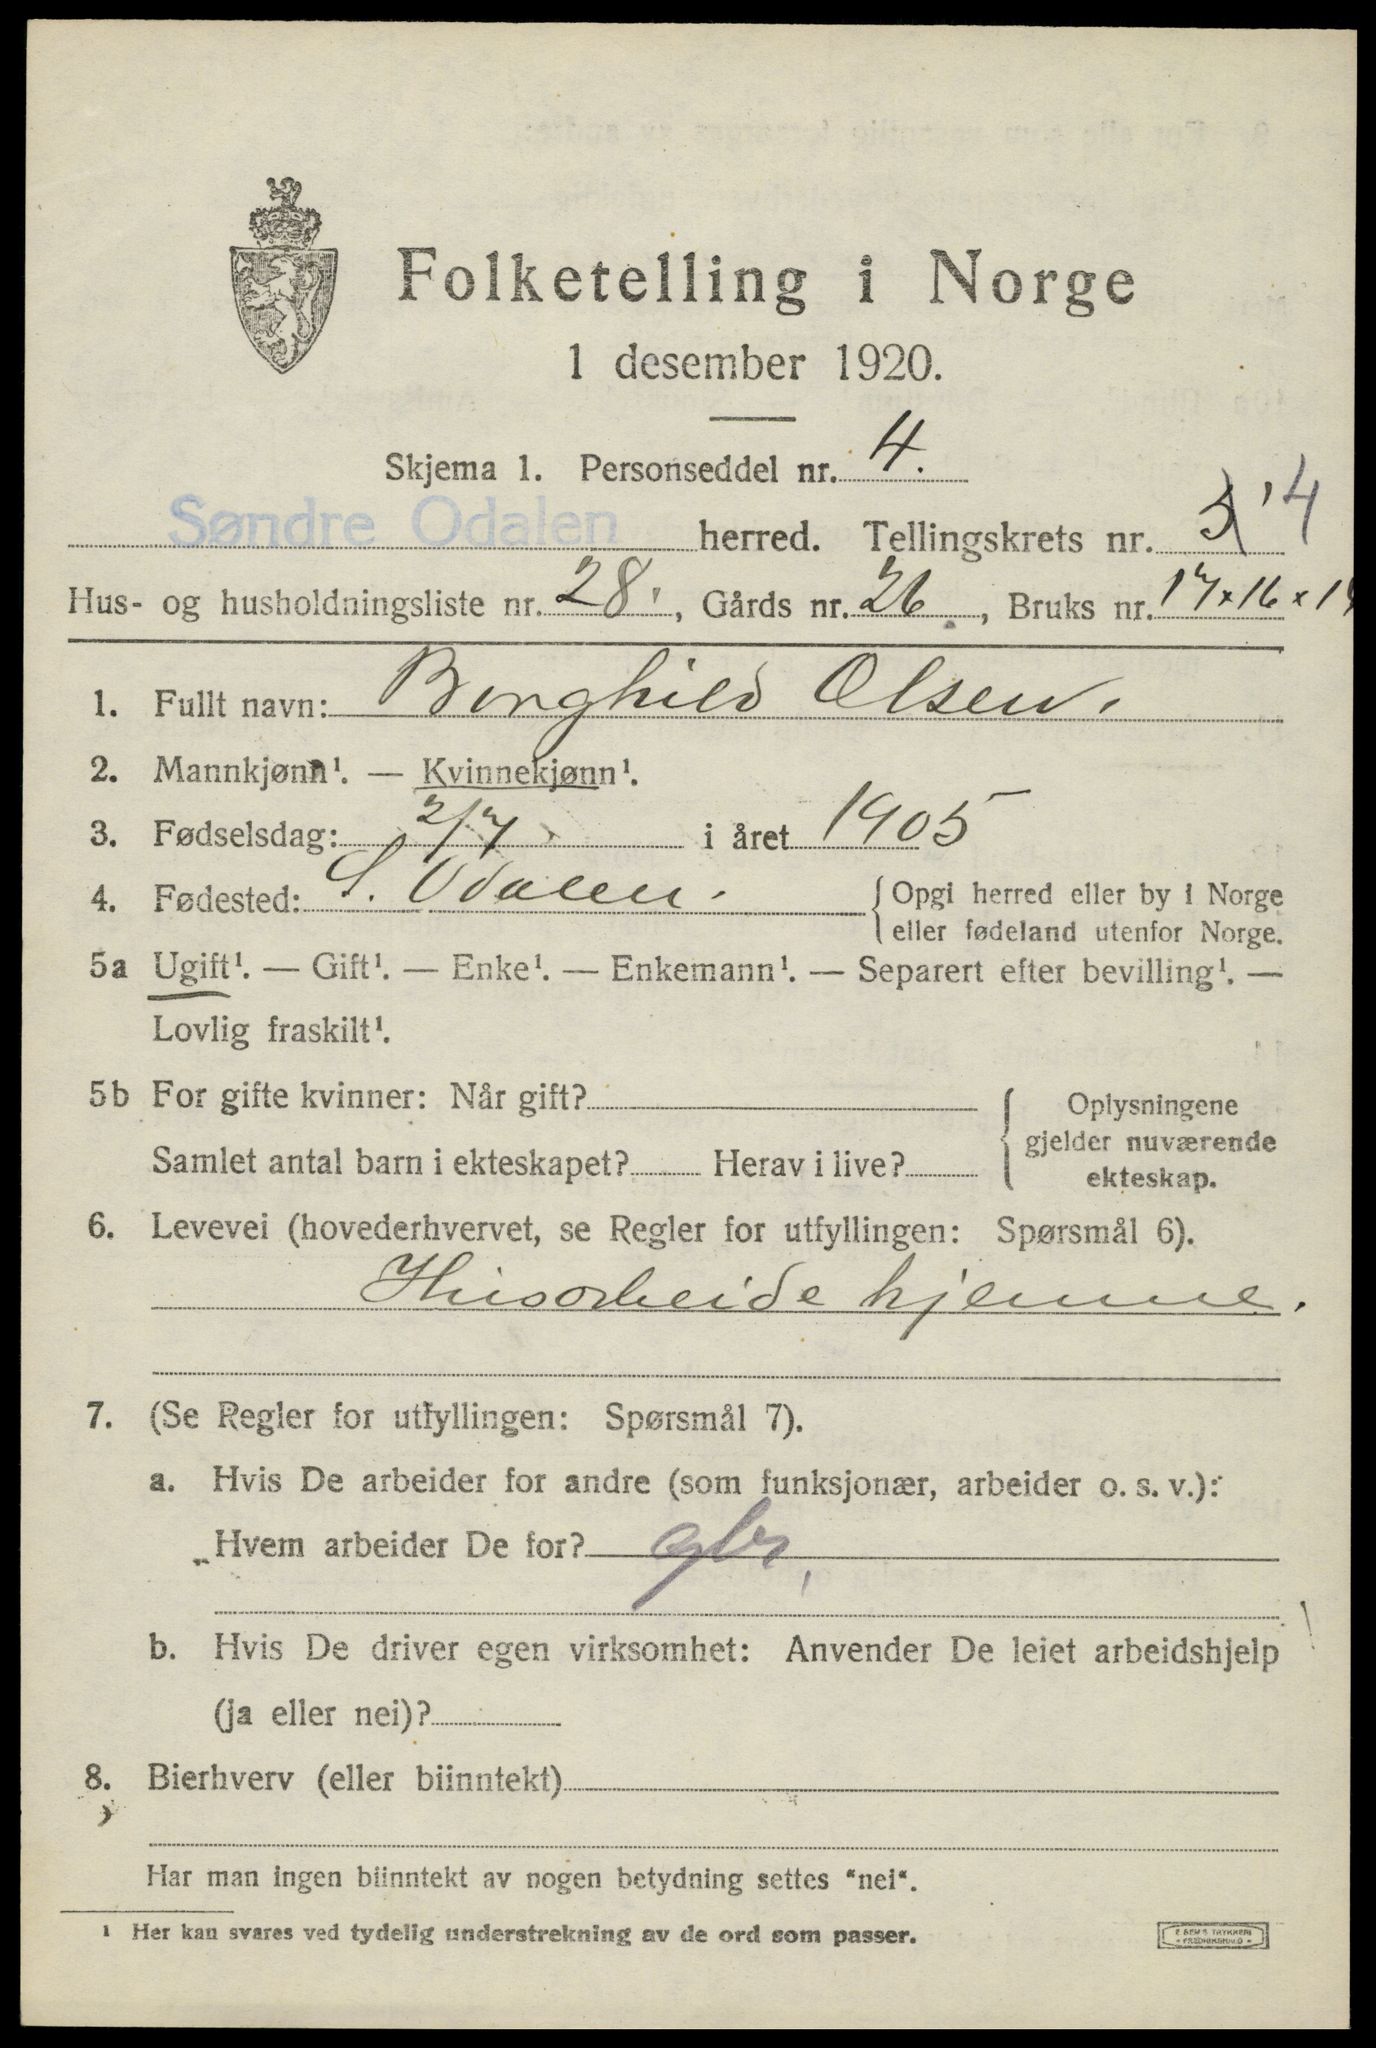 Folketelling i Norge
1 desember 1920.
Skjema 1. Personseddel nr. 4.
Søndre Odalen herred. Tellingskrets nr. 3 4
Hus- og husholdningsliste nr. 28, Gårds nr. 26, Bruks nr. 17 x 16 x
1. Fullt navn: Borghild Olsen.
2. Mannkjønn¹. — Kvinnekjønn¹.
3. Fødselsdag: 2/7 i året 1905
4. Fødested: S. Odalen. { Opgi herred eller by i Norge
eller fødeland utenfor Norge.
5a Ugift¹. — Gift¹. — Enke¹. — Enkemann¹. — Separert efter bevilling¹. —
Lovlig fraskilt¹.
5b For gifte kvinner: Når gift?
Samlet antal barn i ekteskapet? Herav i live?
{ Oplysningene
gjelder nuværende
ekteskap.
6. Levevei (hovederhvervet, se Regler for utfyllingen: Spørsmål 6).
Husarbeide hjemme.
7. (Se Regler for utfyllingen: Spørsmål 7).
a. Hvis De arbeider for andre (som funksjonær, arbeider o. s. v.):
Hvem arbeider De for? gbr,
b. Hvis De driver egen virksomhet: Anvender De leiet arbeidshjelp
(ja eller nei)?
8. Bierhverv (eller biinntekt)
Har man ingen biinntekt av nogen betydning settes "nei".
¹ Her kan svares ved tydelig understrekning av de ord som passer.